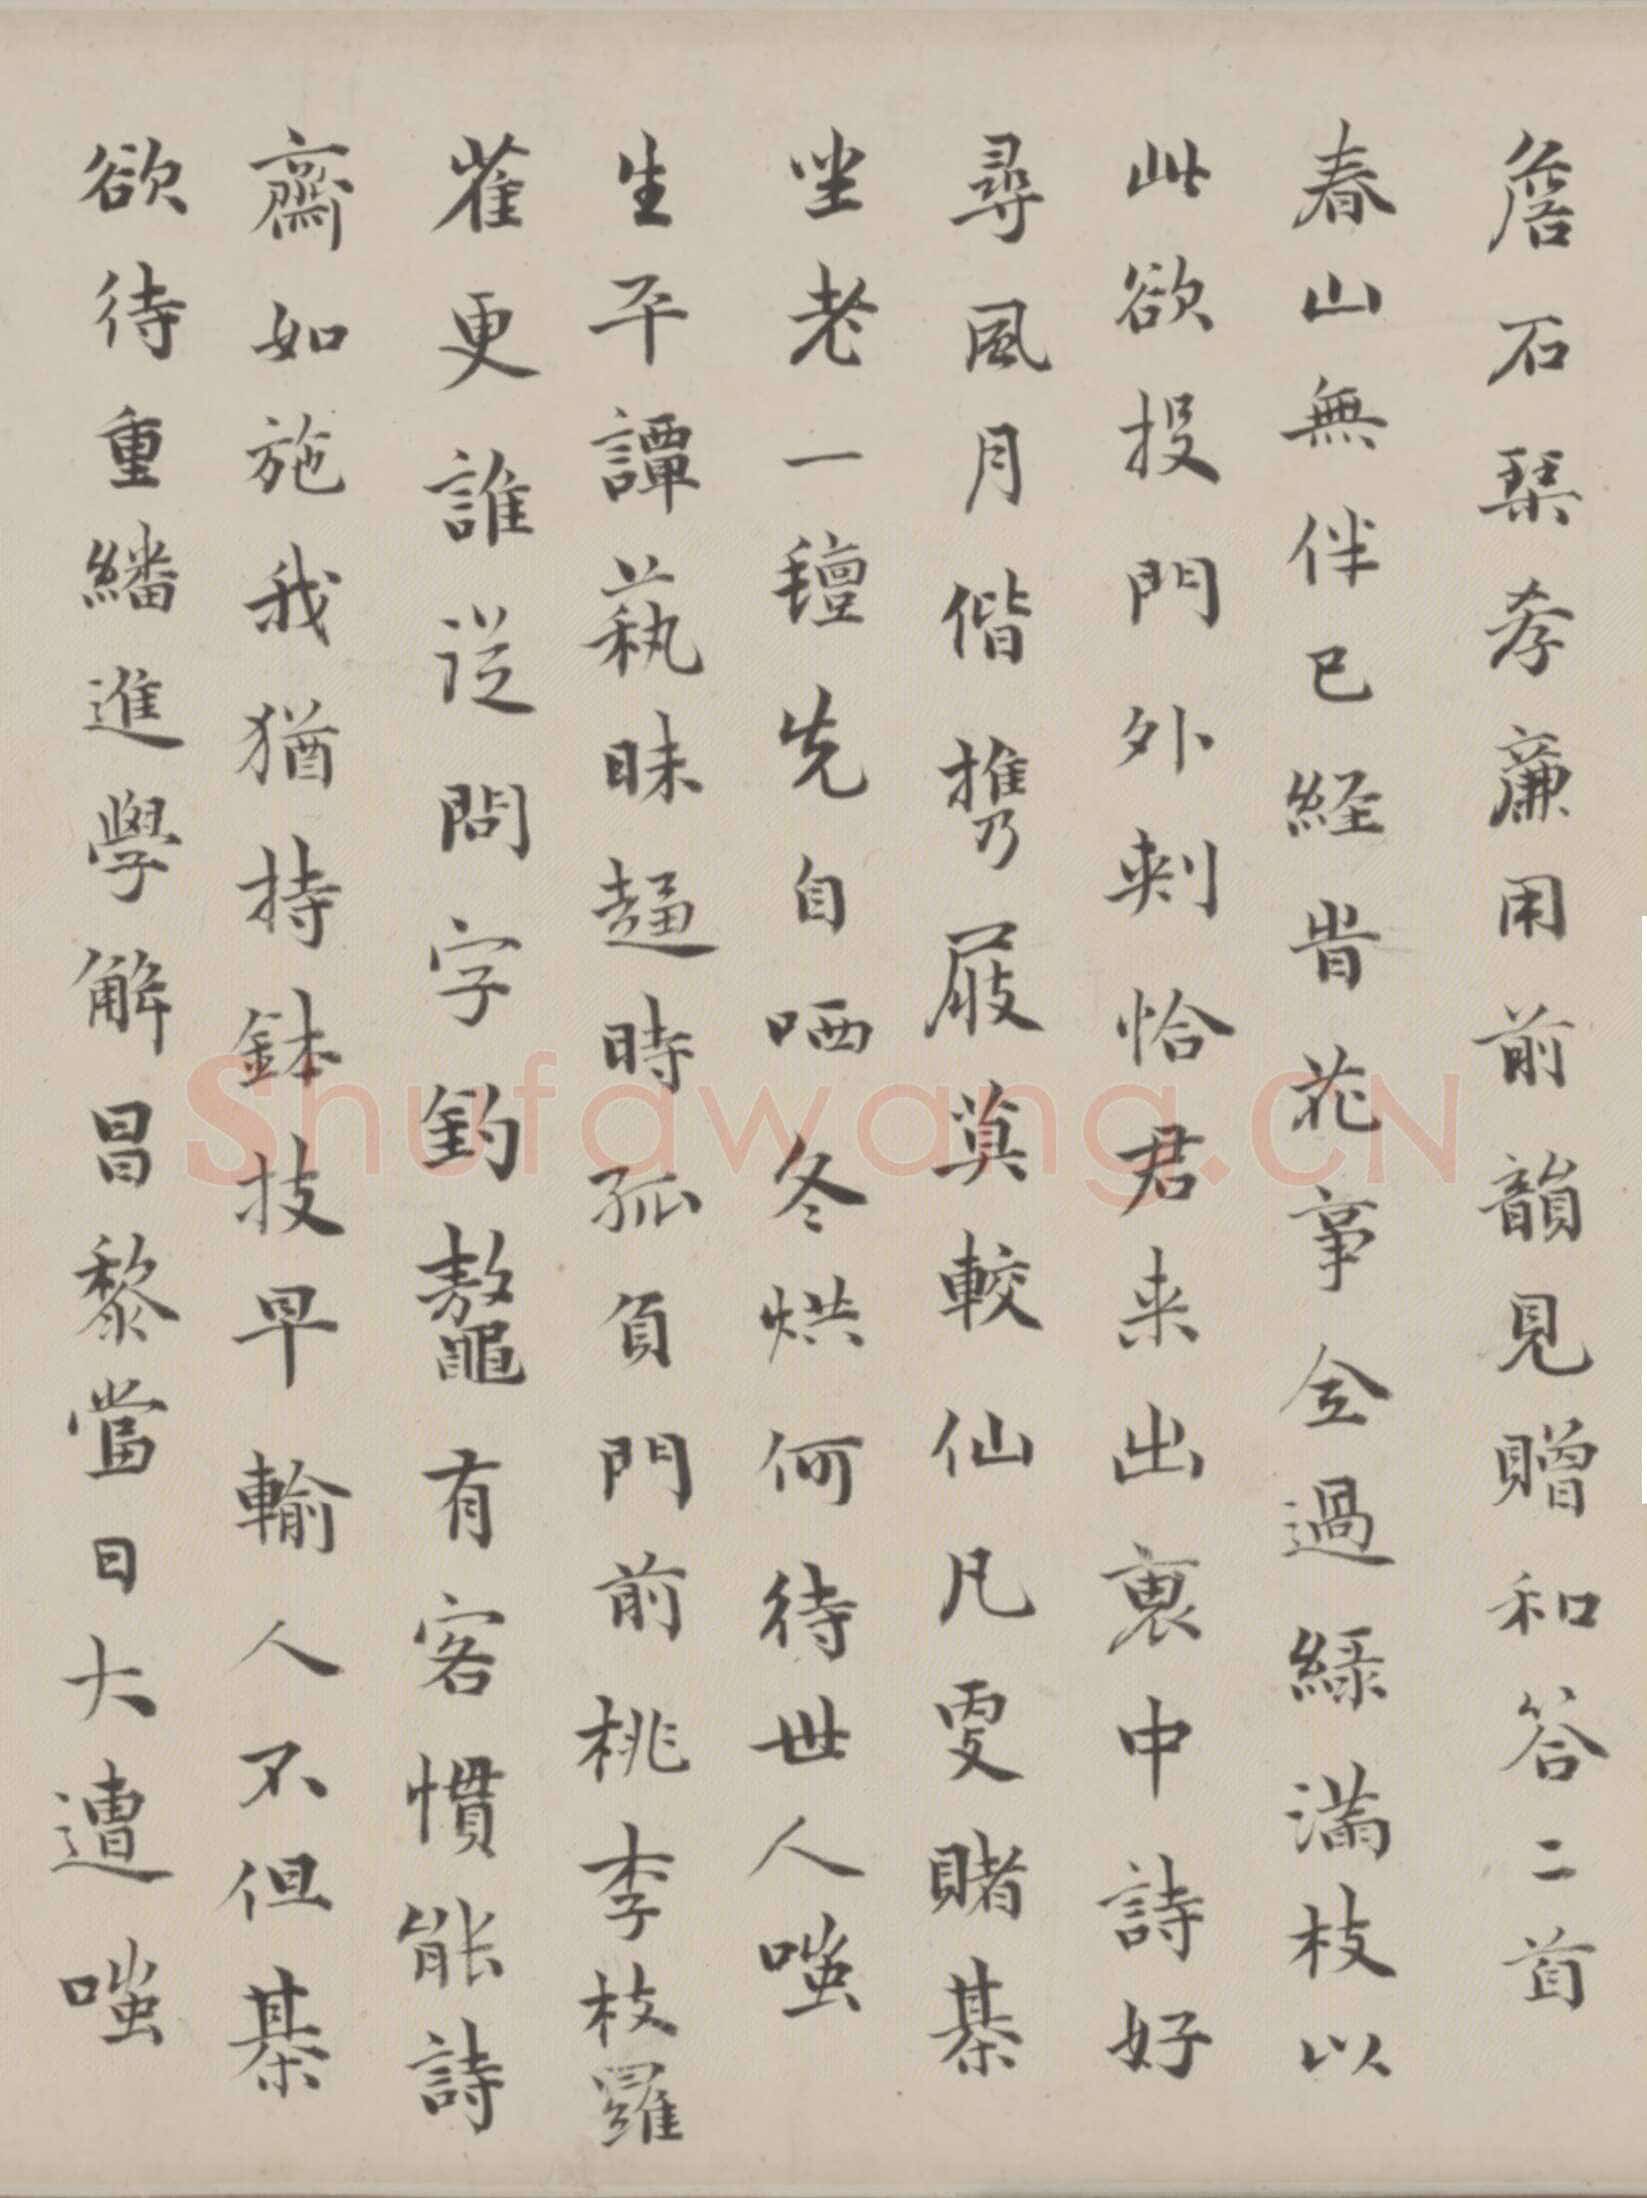 詹石琹孝廉用前韻見贈和答二首
春山無伴已經旹花事全過綠滿枝以
此欲投門外刺恰君来出裏中詩好
尋風月偕攜屐莫較仙凡更賭棊
坐老一氊先自哂冬烘何待世人嗤
生平譚藝昧趨時孤負門前桃李枝羅
雀更誰従問字釣鼇有客慣能詩
齋如施我猶持鉢技早輸人不但棊
欲待重繙進學解昌黎當日大遭嗤
Shufawang.CN